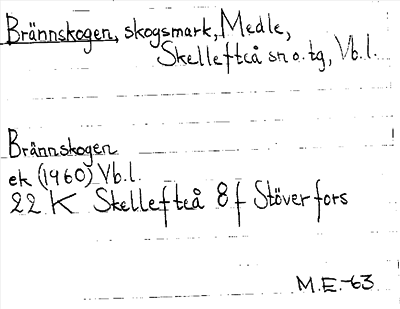 Brännskogen, skogsmark, Medle,
Skellefteå sn o. tg, Vb.l.
Brännskogen
ek (1960) Vb.l.
22 K Skellefteå 8 f Stöverfors
M.E.-63